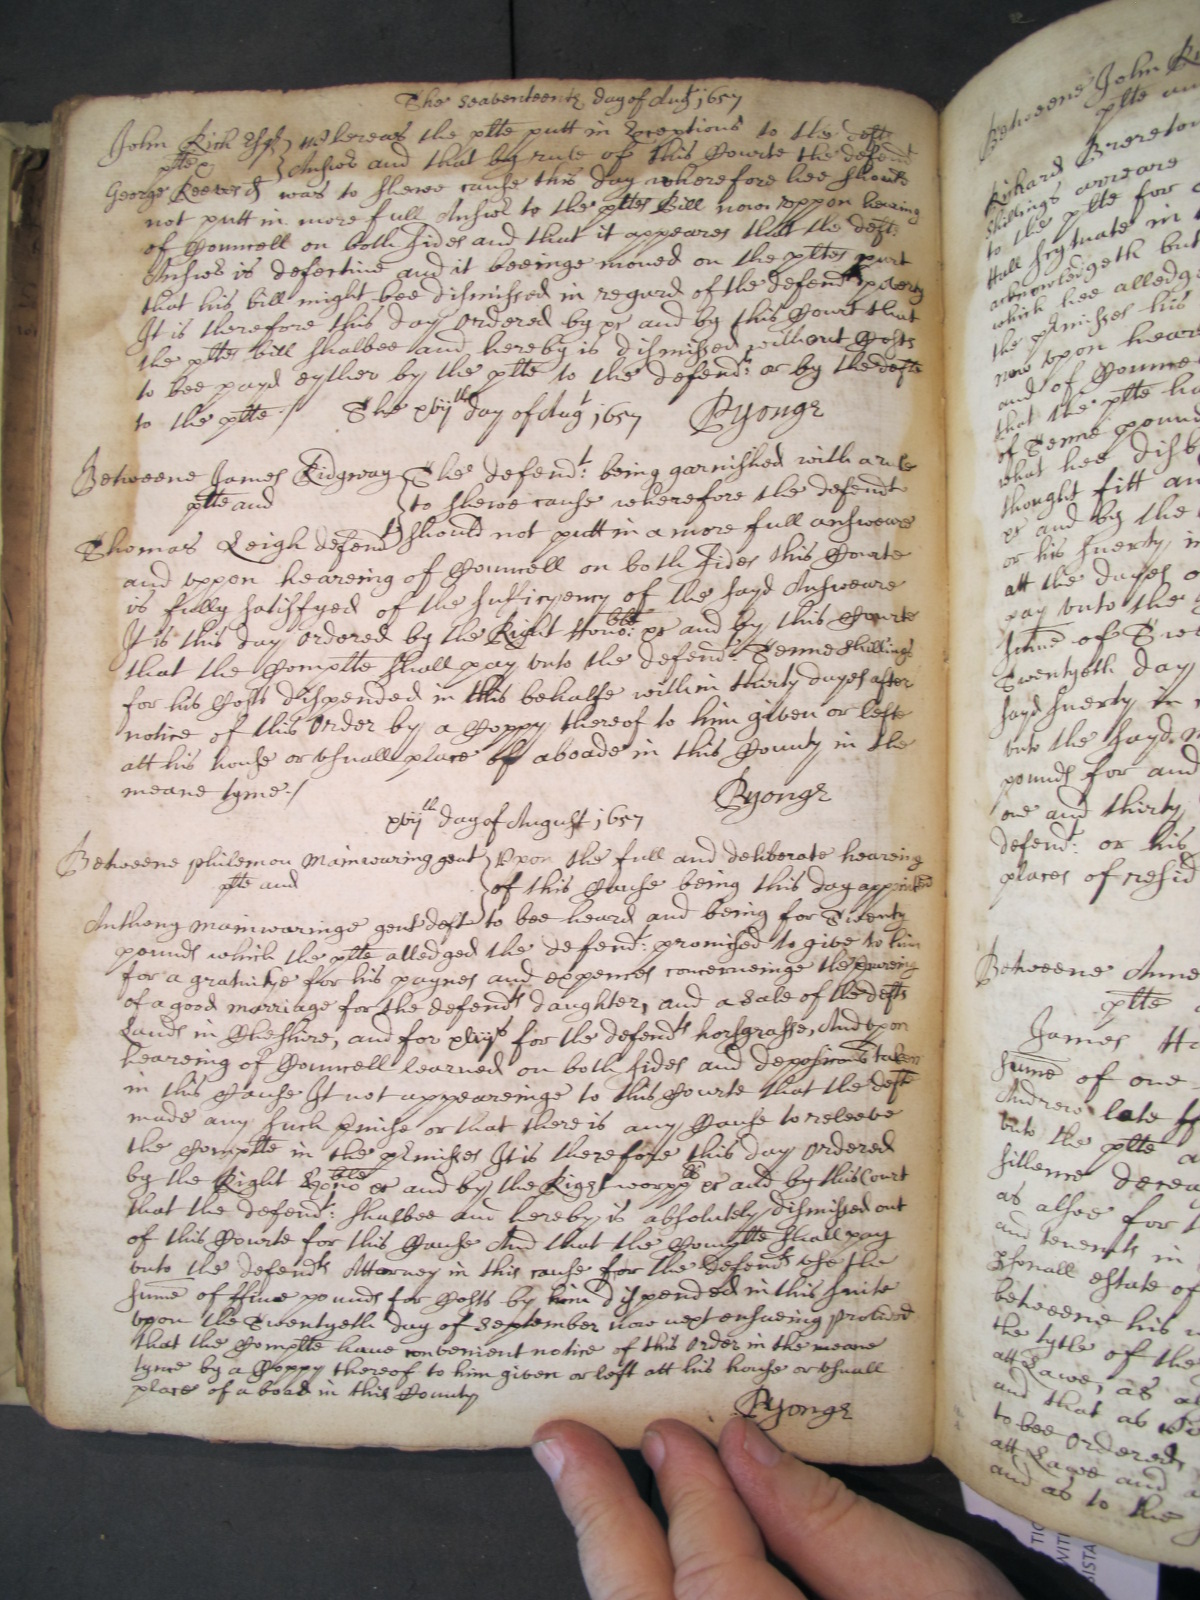 The seaventeenth day of Augt 1657
John Rich Esqr whereas the plte putt in Exceptions to the defts
plte Answer and that by rule of this Courte the defendt
George Reeves d was to shewe cause this day wherefore hee should
not putt in more full Answer to the pltes Bill now vppon hearing
of Councell on both sides and that it appeares that the defts
Answer is defective and it beeinge moved on the pltes part
that his bill might bee dismissed in regard of the defendts poverty
It is therefore this day ordered by &c and by this Court that
the pltes bill shalbee and hereby is dismissed without Costs
to bee payd eyther by the plte to the defendt: or by the defte
to the plte /
The xvijth day of Augt 1657 PYonge
Betweene James Ridgway The defendt: being garnished with a rule
plte and to shewe cause wherefore the defendt
Thomas Leigh defendt should not putt in a more full answeare
and vppon heareing of Councell on both sides this Courte
is fully satisfyed of the sufficyency of the sayd Answeare
It is this day ordered by the Right Honoble: &c and by this Courte
that the Complte shall pay vnto the defendt: Tenne shillings
for his Costs dispended in this behalfe within thirty dayes after
notice of this Order by a Coppy thereof to him given or lefte
att his house or vsuall place of aboade in this County in the
meane tyme / PYonge
xvijth day of August 1657
Betweene Philemon Mainwaring gent Vpon the full and deliberate hearing
plte and of this Cause being this day appointed
Anthony Mainwaringe gent deft to bee heard and being for Twenty
pounds which the plte alledged the defendt: promised to give to him
for a gratuitye for his paynes and expences concerneinge the
of a good marriage for the defendts daughter, and a Sale of the defts
Lands in Cheshire, and for xlijs for the defendts horsgrasse, And vpon
heareing of Councell learned on both sides and deposicons taken
in this Cause It not appeareinge to this Courte that the defte
made any such pmise or that there is any Cause to releeve
the Complte in the pmisses It is therefore this day Ordered
by the Right Honoble &c and by the Right worpll &c and by this Court
that the defendt: shalbee and hereby is absolutely dismissed out
of this Courte for this Cause And that the Complte shall pay
vnto the defendts Attorney in this cause for the defendts vse the
sume of ffive pounds for Costs by him dispended in this suite
vpon the Twentyeth day of September now next ensueing provided
that the Complte have convenient notice of this Order in the meane
tyme by a Coppy thereof to him given or left att his house or vsuall
place of aboad in this County
PYonge
Betweene John
plte an
Richard Brereton
shillings arreare
to the plte for
Hall scytuate in
acknowledgeth but
which hee alledge
the pmisses his
now vpon heare
and of Councell
that the plte ha
of Tenne pound
what hee disb
thought fitt an
&c and by the
or his suerty in
att the dayes o
pay vnto the
sume of Twe
Twentyeth day
sayd suerty in
vnto the sayd
pounds for and
one and thirty
defendt: or his
places of resid
Betweene Anne
plte
James H
sume of one
Andrew late
vnto the plte a
sittence decea
as alsoe for
and tenemts in
psonall estate of
betweene his
the tytle of the
att Lawe, as a
and that as
to bee ordered,
att Lawe and a
and as to the